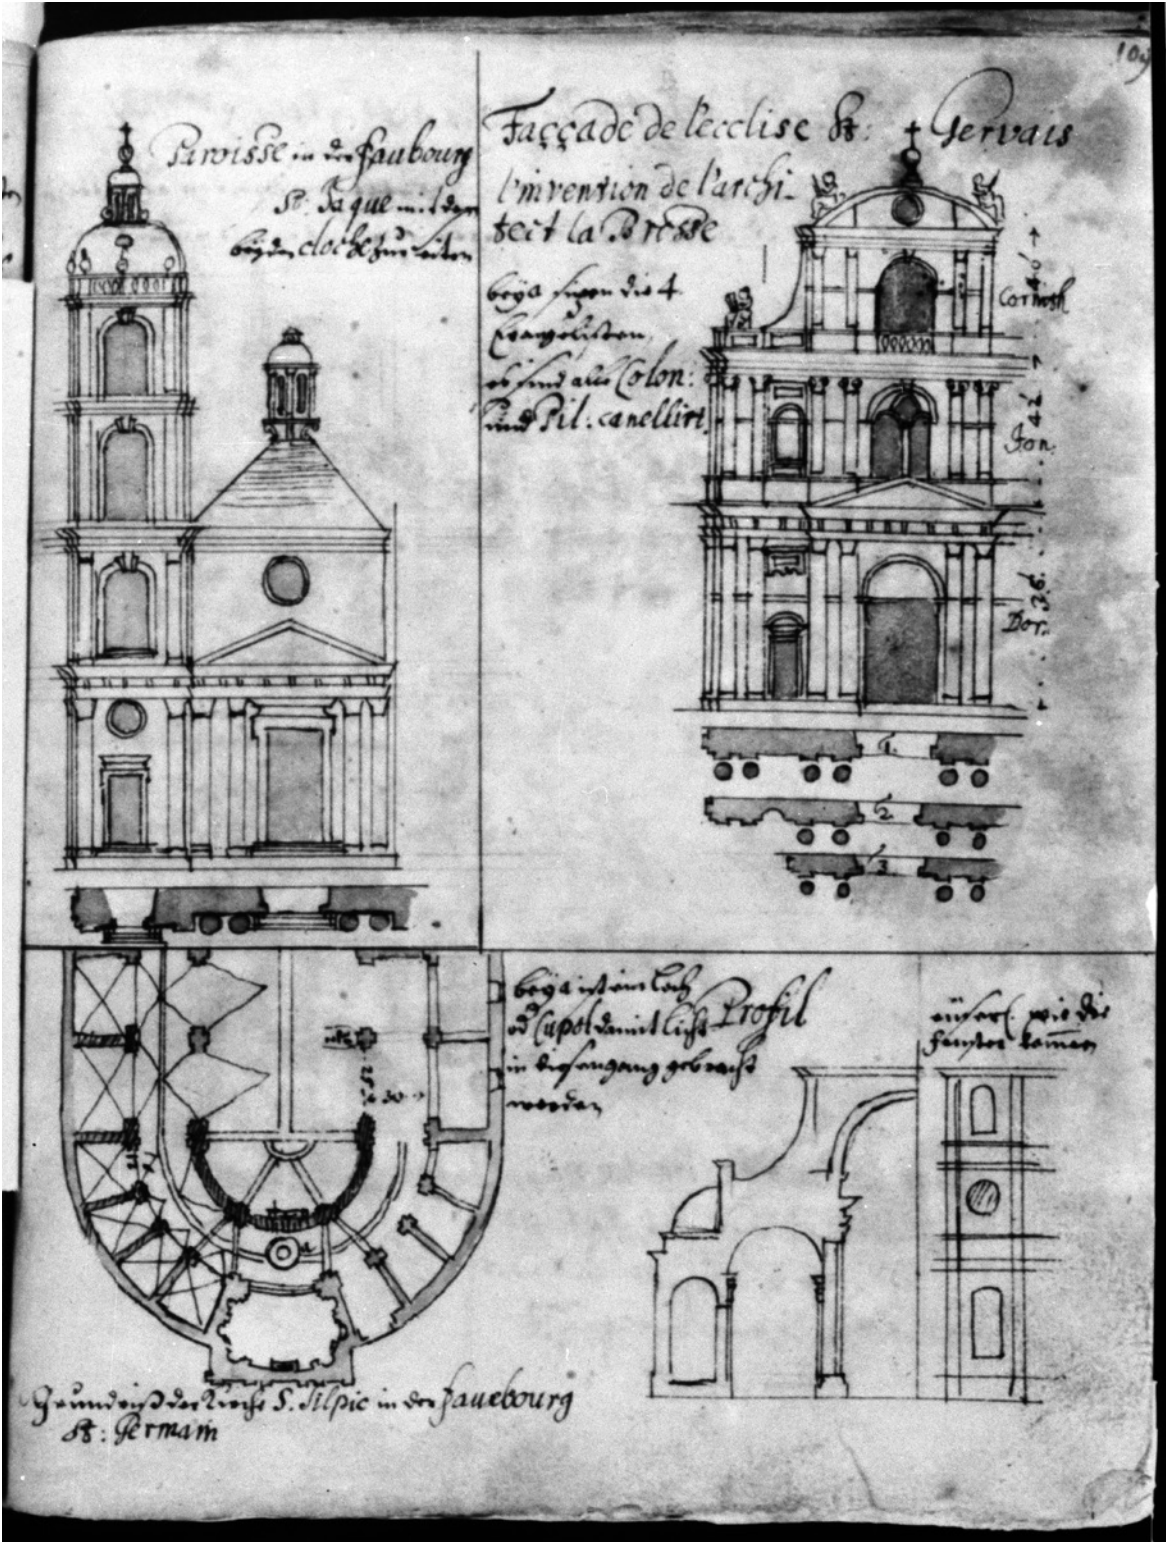 109
Paroisse in der Faubourg
St: Jaque mit den
beyden cloche zur seiten
Faççade de l'ecclise St: Gervais
l'invention de l'archi-
tect la Brosse
beÿ a sizen die 4
Evangelisten,
es sind alle Colon:
und Pil: canellirt.
Cornish
40
Jon.
42
Dor.
36.
1.
2.
3.
beÿ a ist ein loch
od Cupol damit licht
in diesen gang gebracht
werden
Profil
eüserl. wie die
fenster kommen
25
30
a
Grundriß der Kirche S. Silpic in der Fauxbourg
St: Germain